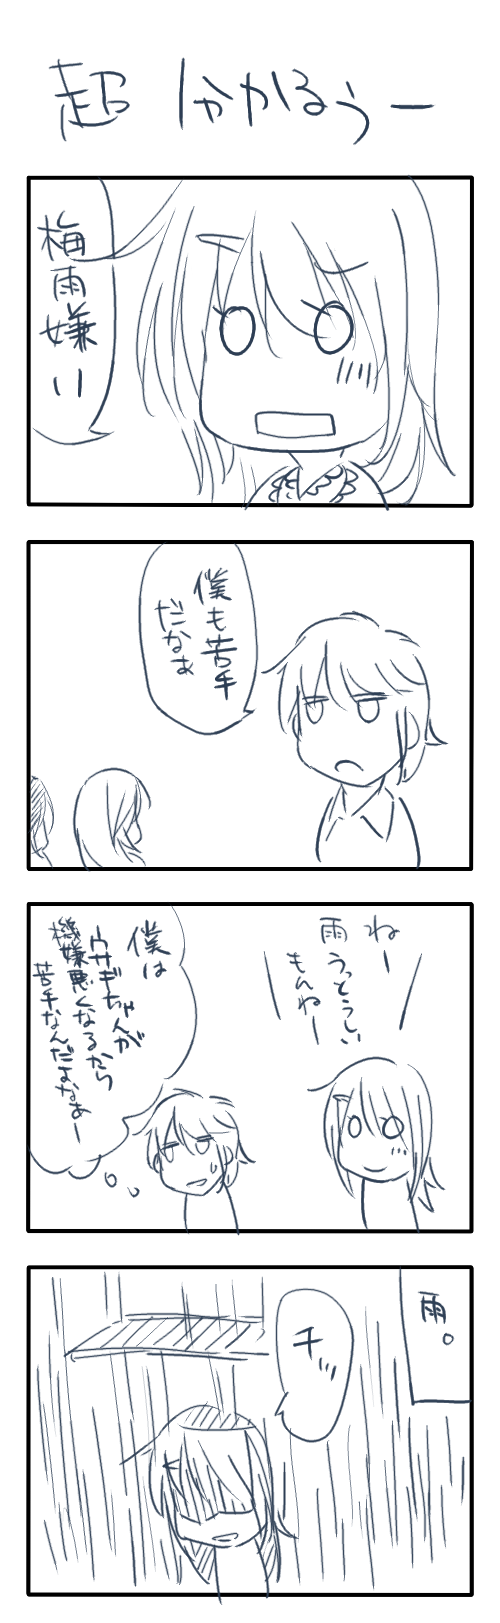 超 分かるぅー
梅雨嫌い
僕も苦手
だなぁ
ねー
雨うっとうしい
もんねー
僕は
ウサギちゃんが
機嫌悪くなるから
苦手なんだよなぁー
雨。
チッ…